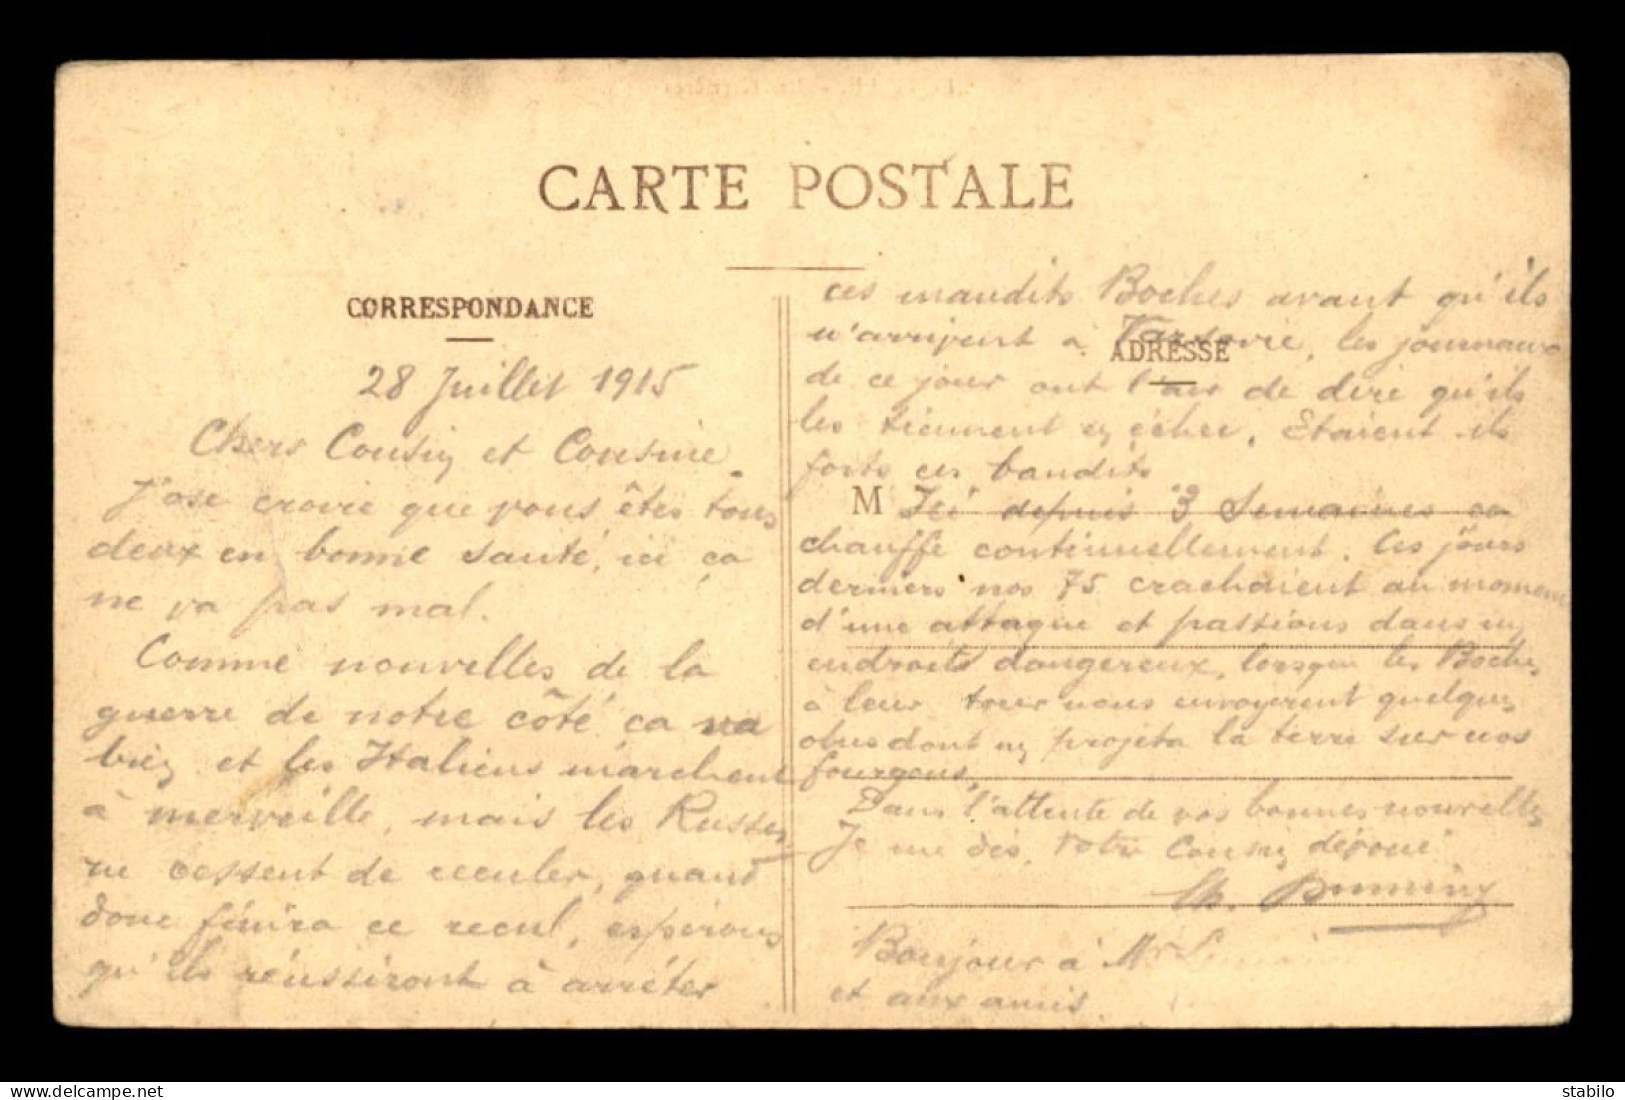 CARTE POSTALE
CORRESPONDANCE
28 Juillet 1915
Chers Cousin et Cousine.
J'ose croire que vous êtes tous
deux en bonne santé, ici ça
ne va pas mal.
Comme nouvelles de la
guerre de notre côté ça va
bien et les Italiens marchent
à merveille, mais les Russes
ne cessent de reculer, quand
donc finira ce recul, espérons
qu'ils réussiront à arrêter
ces maudits Boches avant qu'ils
n'arrivent à Varsovie, les journaux
ADRESSE
de ce jour ont l'air de dire qu'ils
les tiennent en échec. Etaient ils
forts ces bandits
M Ici depuis 3 Semaines ça
chauffe continuellement. Ces jours
derniers nos 75 crachaient au moment
d'une attaque et passions dans un
endroits dangereux, lorsque les Boches
à leur tour nous envoyerent quelques
obus dont un projeta la terre sur nos
fourgons.
Dans l'attente de vos bonnes nouvelles
Je me dis, Votre Cousin dévoué
Ch.
Bonjour à Mr
et aux amis.
stabilo